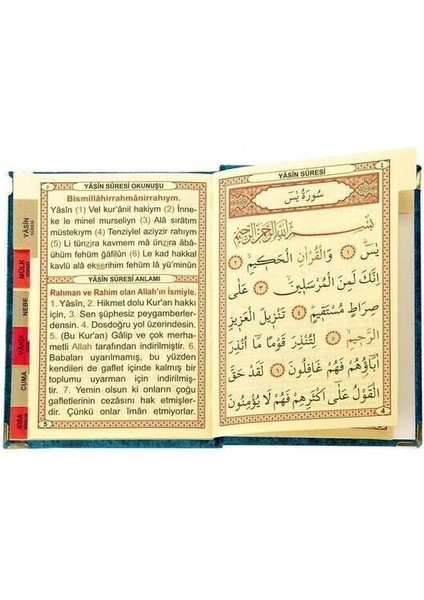 YÂSİN SÛRESİ OKUNUŞU
Bismillâhirrahmânirrahıym.
Yâsîn (1) Vel kur'ânil hakiym (2) İnne-
ke le minel murseliyn (3) Alâ sırâtım
müstekıym (4) Tenziylel aziyzir rahıym
(5) Li tünzira kavmem mâ ünzira âbâ-
ühüm fehüm ğâfilûn (6) Le kad hakkal
kavlü alâ ekserihim fehüm lâ yü'minûn
YÂSİN SÛRESİ ANLAMI
Rahman ve Rahim olan Allah'ın İsmiyle.
1. Yâsîn, 2. Hikmet dolu Kur'an hakkı
için, 3. Sen şüphesiz peygamberler-
densin. 4. Dosdoğru yol üzerindesin.
5. (Bu Kur'an) Gâlip ve çok merha-
metli Allah tarafından indirilmiştir. 6.
Babaları uyarılmamış, bu yüzden
kendileri de gaflet içinde kalmış bir
toplumu uyarman için indirilmiş-
tir. 7. Yemin olsun ki onların çoğu
gafletlerinin cezasını hak etmişler-
dir. Çünkü onlar îman etmiyorlar.
5
YÂSİN
SÛRESİ
MÜLK
NEBE
VAKIA
CUMA
YÂSİN SÛRESİ
٤
سُورَةُ يٰسٓ
بِسْمِ اللّٰهِ الرَّحْمٰنِ الرَّحِيمِ
يٰسٓ ﴿١﴾ وَالْقُرْاٰنِ الْحَكِيمِ ﴿٢﴾
اِنَّكَ لَمِنَ الْمُرْسَلِينَ ﴿٣﴾ عَلٰى
صِرَاطٍ مُسْتَقِيمٍ ﴿٤﴾ تَنْزِيلَ الْعَزِيزِ
الرَّحِيمِ ﴿٥﴾ لِتُنْذِرَ قَوْمًا مَٓا اُنْذِرَ
اٰبَٓاؤُ۬هُمْ فَهُمْ غَافِلُونَ ﴿٦﴾ لَقَدْ حَقَّ
الْقَوْلُ عَلٰٓى اَكْثَرِهِمْ فَهُمْ لَا يُؤْمِنُونَ
4